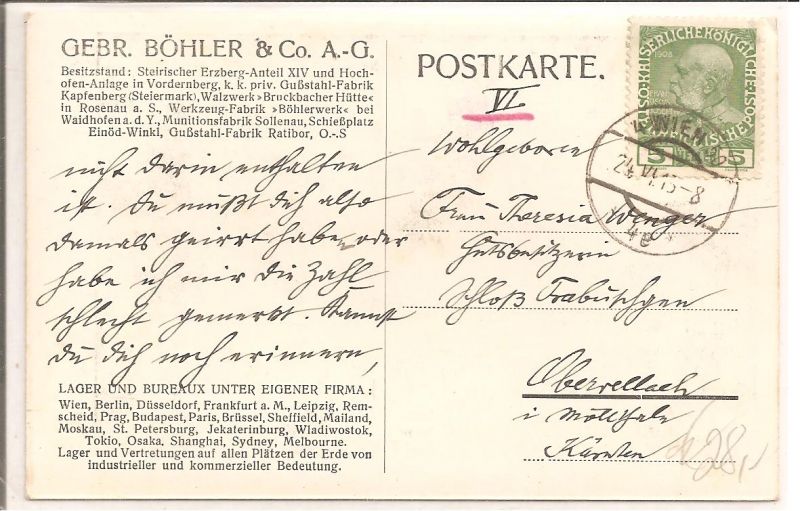 GEBR. BÖHLER & Co. A.-G.
Besitzstand: Steirischer Erzberg-Anteil XIV und Hoch-
ofen-Anlage in Vordernberg, k. k. priv. Gußstahl-Fabrik
Kapfenberg (Steiermark), Walzwerk »Bruckbacher Hütte«
in Rosenau a. S., Werkzeug-Fabrik »Böhlerwerk« bei
Waidhofen a. d. Y., Munitionsfabrik Sollenau, Schießplatz
Einöd-Winkl, Gußstahl-Fabrik Ratibor, O.-S
nicht darin enthalten
ist. Du mußt dich also
damals geirrt haben, oder
habe ich mir die Zahl
schlecht gemerkt. Kannst
du dich noch erinnern,
LAGER UND BUREAUX UNTER EIGENER FIRMA:
Wien, Berlin, Düsseldorf, Frankfurt a. M., Leipzig, Rem-
scheid, Prag, Budapest, Paris, Brüssel, Sheffield, Mailand,
Moskau, St. Petersburg, Jekaterinburg, Wladiwostok,
Tokio, Osaka, Shanghai, Sydney, Melbourne.
Lager und Vertretungen auf allen Plätzen der Erde von
industrieller und kommerzieller Bedeutung.
POSTKARTE.
VI
Wohlgeboren
Frau Theresia Wenger
Gutsbesitzerin
Schloß Trabuschgen
Obervellach
i Mölltale
Kärnten
28,-
KAISERLICHE KÖNIGLICHE
1908
5 5
WIEN
24.VI.13-8
4e